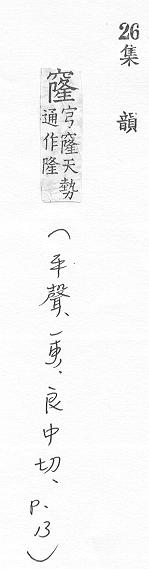 26集韻
窿穹窿天勢
通作隆
（平聲、一東、良中切、p.13）